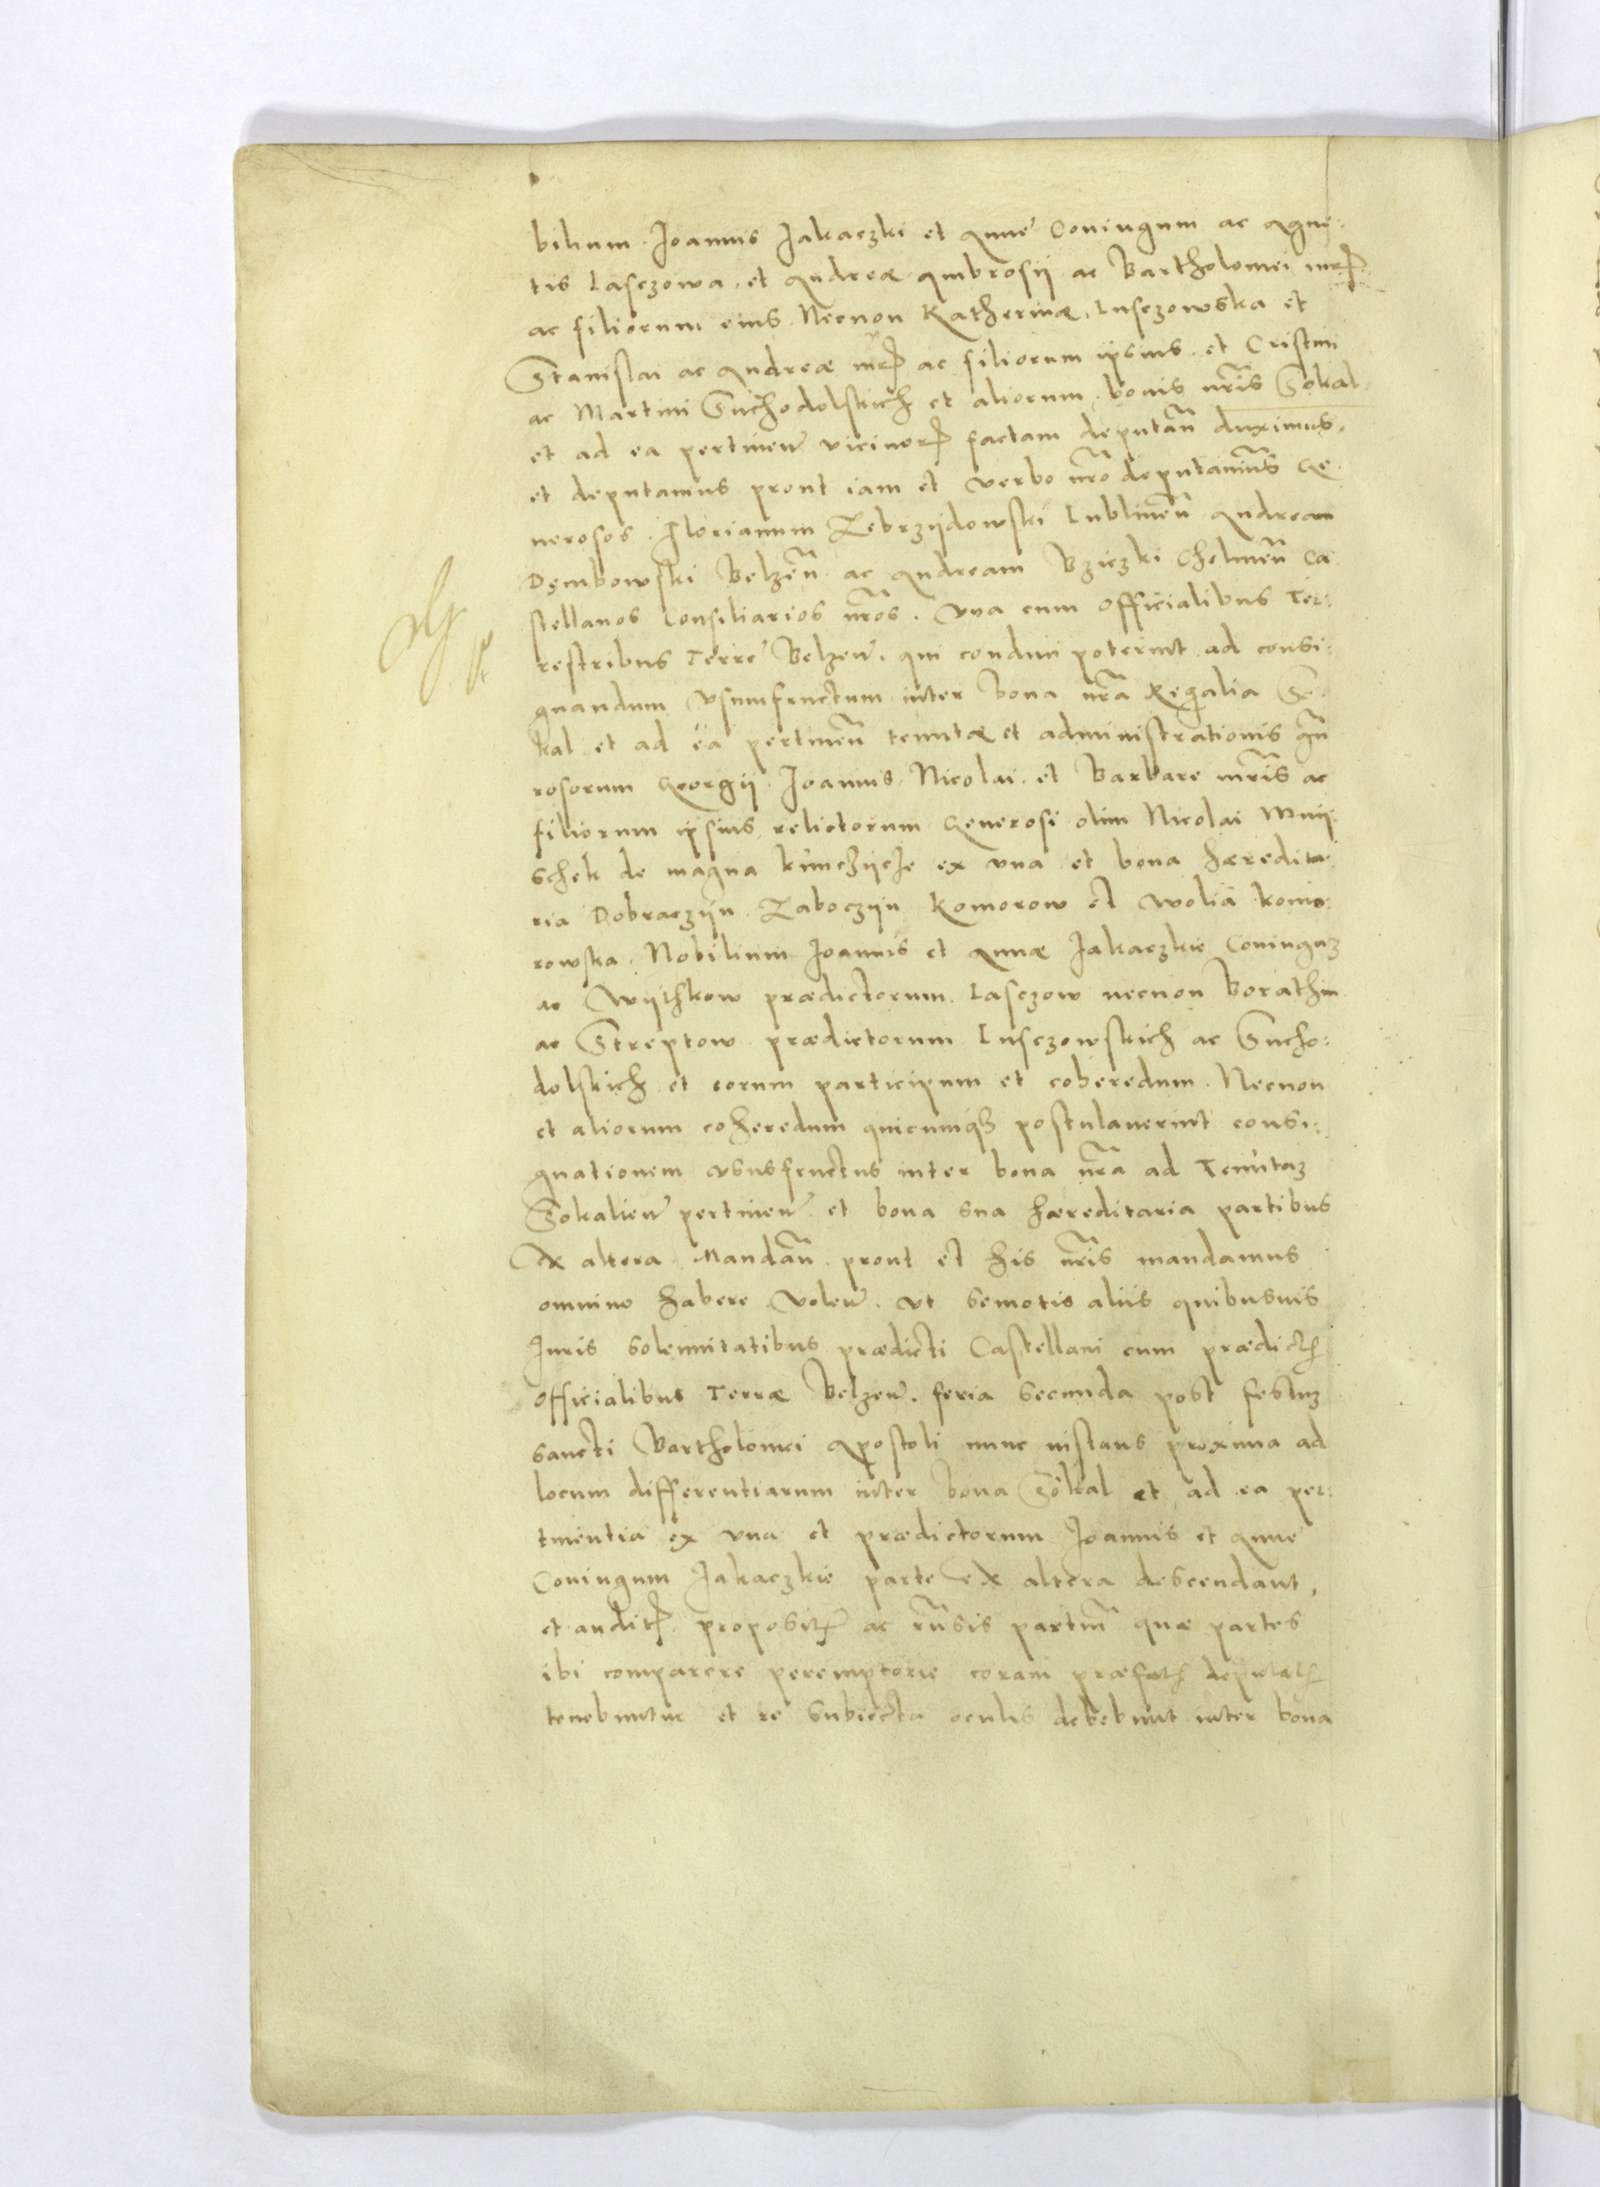 bilium Ioannis Jakaczki et Anne Coniugum ac Agne:
tis Lasczowa, et Andreæ Ambrosii ac Bartholomei
ac filiorum eius Necnon Katherinæ Lusczowska et
Stanislai ac Andreæ ac filiorum ipsius et Cristini
ac Martini Suchodolskich et aliorum bonis nr̃is Sokal
et ad ea pertineñ factam deputañ duximus,
et deputamus prout iam et verbo nr̃o deputavimus Ge
nerosos Florianum Zebrzijdowski Lublineñ Andream
Dembowski Belzeñ ac Andream Bziczki Chelmeñ Ca
stellanos Consiliarios nr̃os. Vna cum Officialibus Ter:
restribus Terre Belzeñ. qui conduci poterint ad consi:
gnandum Vsumfructum inter bona nr̃a Regalia So
kal et ad ea pertineñ tenutæ et administrationis gñ
rosorum Georgii Ioannis Nicolai et Barbare mr̃is ac
filiorum ipsius relictorum Generosi olim Nicolai Mnij
schek de magna kunczijcze ex vna et bona hæredita
ria Dobraczijn Zaboczijn Komorow et Wolia komo
rowska Nobilium Ioannis et Annæ Jakaczkie Coniugũ
ac Wijthkow prædictorum Lasczow necnon Borathin
ac Streptow prædictorum Lusczowskich ac Sucho:
dolskich et eorum participum et coheredum Necnon
et aliorum coheredum quicumq3 postulaverint consi:
gnationem vsusfructus inter bona nr̃a ad Tenutaz
Sokalieñ pertineñ et bona sua hæreditaria partibus
ex altera Mandañ prout et his nr̃is mandamus
omnino habere voleñ. vt semotis aliis quibusuis
Iuris solennitatibus prædicti Castellani cum prædictis
Officialibus Terræ Belzeñ. feria secunda post festuz
sancti Bartholomei Apostoli nunc instans proxima ad
locum differentiarum inter bona Sokal et ad ea per:
tinentia ex vna et prædictorum Ioannis et Anne
Coniugum Jakaczkie parte ex altera descendant,
et auditis propositis ac rñsis partiũ quæ partes
ibi comparere peremptorie coram præfatis deputatis
tenebuntur et re subiecta oculis debebunt inter bona